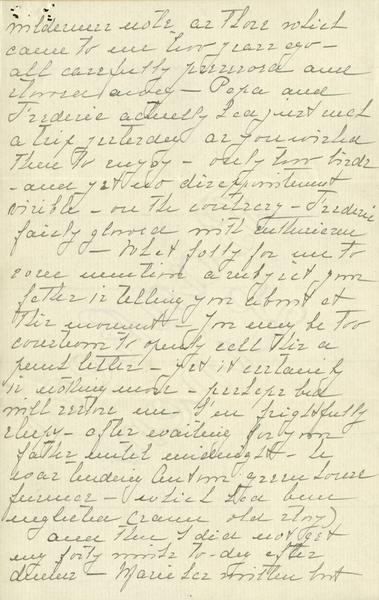 wilderness note as those which
came to me two years ago –
all carefully preserved and
stowed away – Papa and
Frederic actually had just such
a trip yesterday as you wished
them to enjoy – only two birds
– and yet no disappointment
visible – on the contrary – Frederic
fairly glowed with enthusiasm
– What folly for me to
even mention a subject your
father is telling you about at
this moment – You may be too
courteous to openly call this a
letter – yet it certainly
is nothing more – perhaps bed
will restore me – I'm frightfully
sleepy – after waiting for your
father until midnight – he
was tending Antoni green house
furnace – which had been
neglected (same old story)
and then I did not get
my forty winks to-day after
dinner – Marie has written but